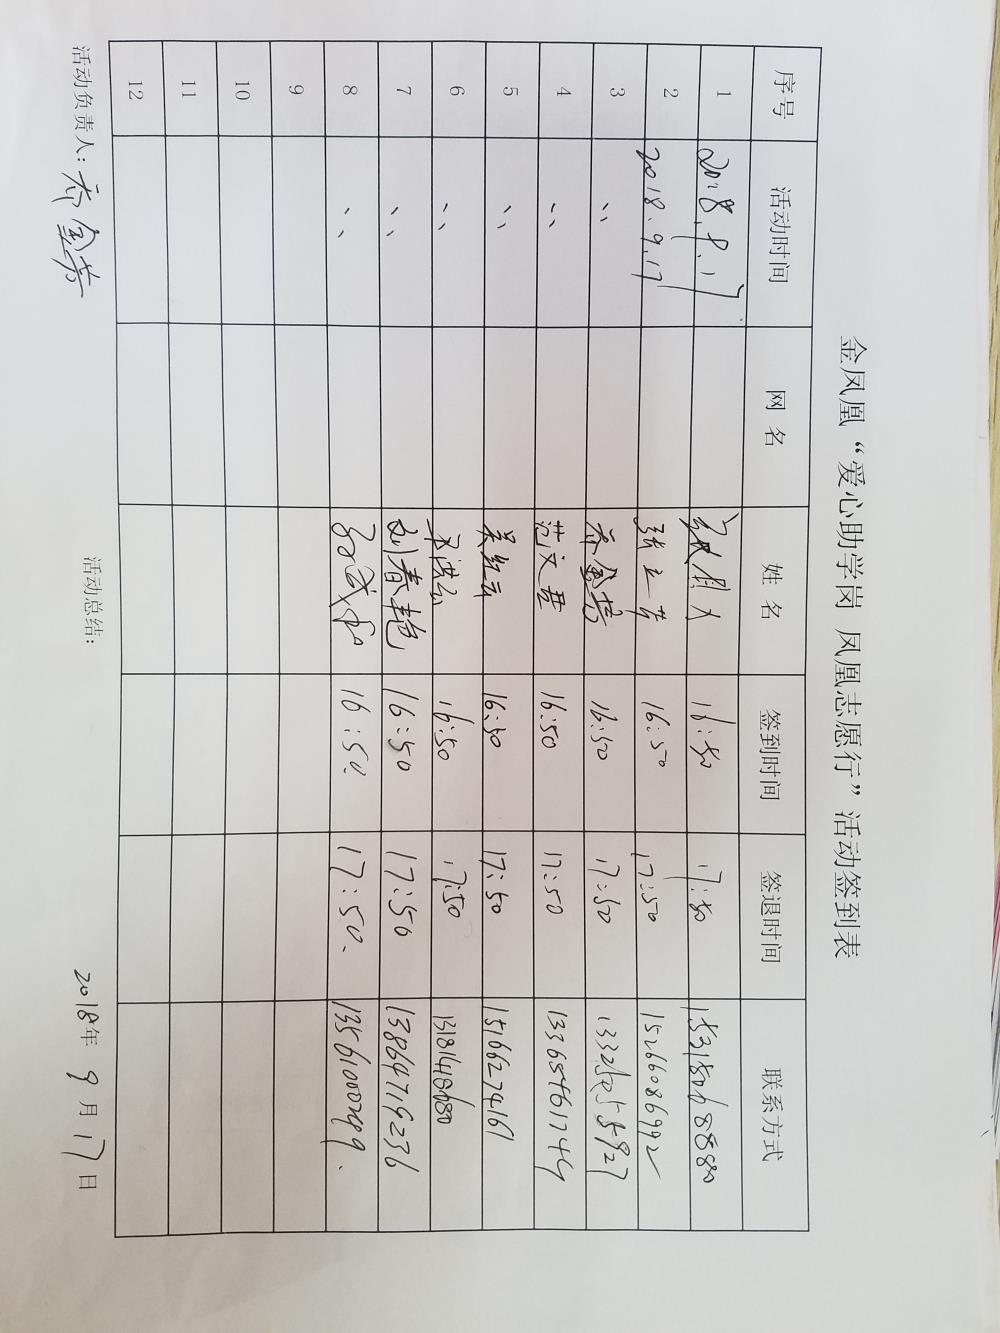 金凤凰“爱心助学岗 凤凰志愿行”活动签到表
序号 活动时间 网名 姓名 签到时间 签退时间 联系方式
1 2018.9.17 16:50 17:50
2 2018.9.17 张立芳 16:50 17:50 15266086992
3 〃 乔金芳 16:50 17:50
4 〃 范文君 16:50 17:50
5 〃 吴红云 16:50 17:50 15166274161
6 〃 16:50 17:50
7 〃 刘春艳 16:50 17:50 13864719236
8 〃 16:50. 17:50. 13561000299.
9
10
11
12
活动负责人: 乔金芳 活动总结: 2018年 9月 17日